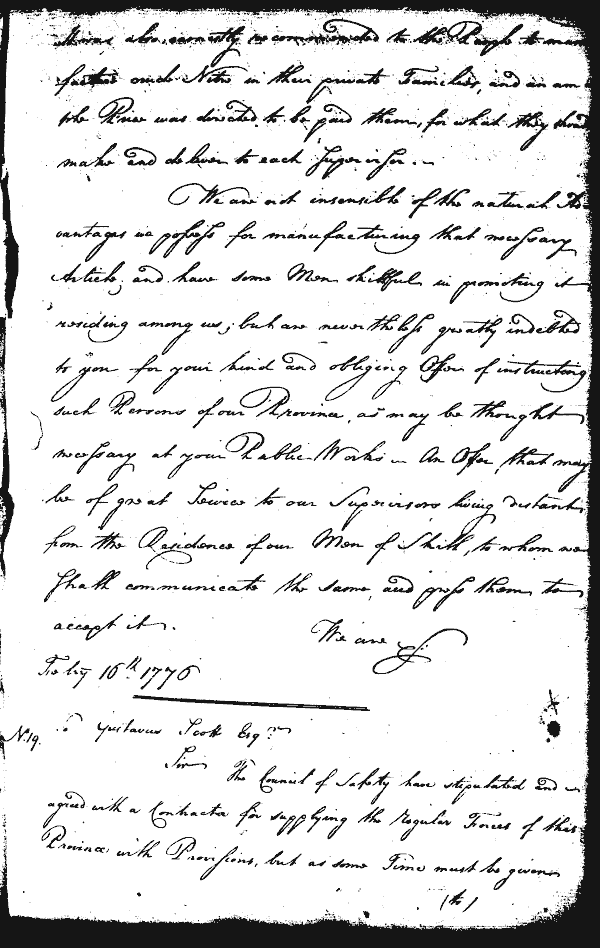 It was also earnestly recommended to the People to manu
facture crude Nitre in their private Families, and an am
the Price was directed to be paid them, for what they should
make and deliver to each Supervisor.
We are not insensible of the natural Ad
vantages we possess for manufacturing that necessary
Article; and have some Men skillful in promoting it
residing among us; but are nevertheless greatly indebted
to you for your kind and obliging Offer of instructing
such Persons of our Province, as may be thought
necessary at your Public Works. An Offer, that may
be of great Service to our Supervisors living distant
from the Residence of our Men of Skill, to whom we
shall communicate the same, and press them to
accept it.
We are &c
Feby 16th 1776
No 19. To Gustavus Scott Esqr
Sir
The Council of Safety have stipulated and
agreed with a Contractor for supplying the regular Forces of this
Province with Provisions, but as some Time must be given
(to)